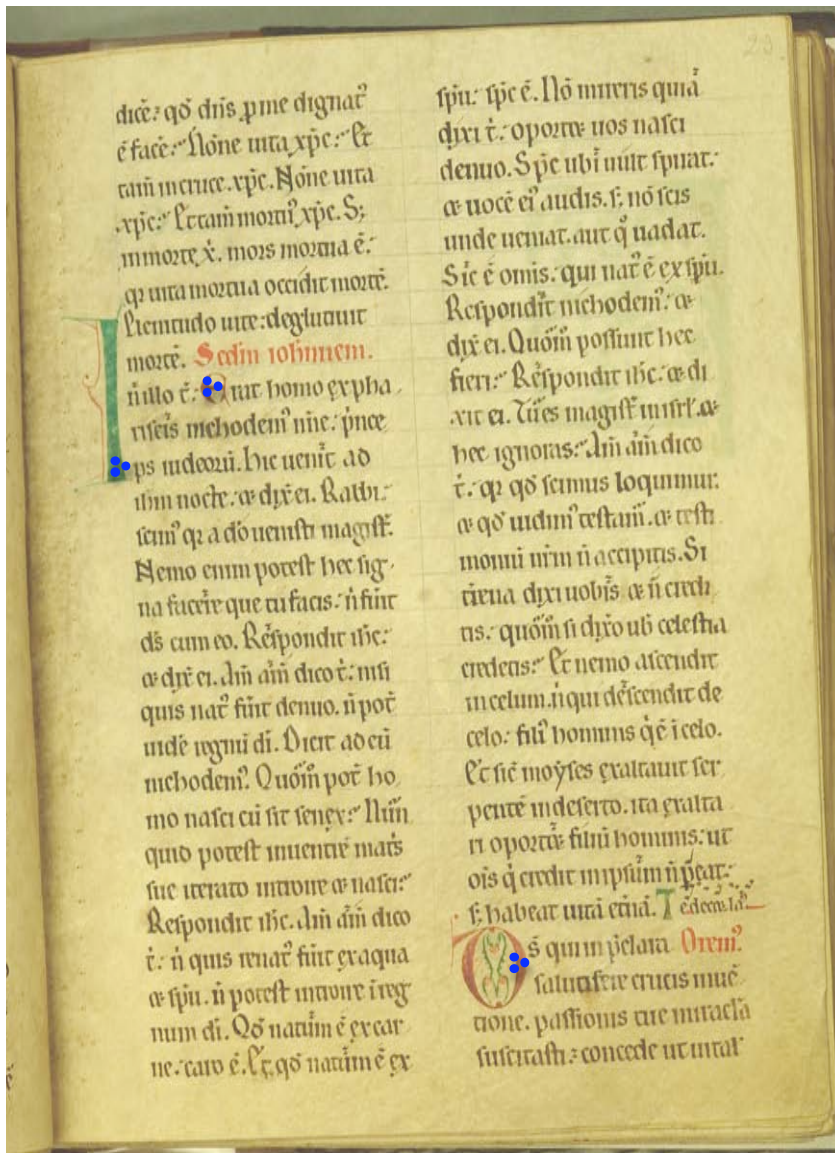 23
dicē: qđ dn̄s p me dignat᷒
ē facē: Nōne uita xp̄c: Et
tam̄ in cruce. xp̄c. Nōne uita
xp̄c: Et tam̄ mortu᷒ xp̄c. S;
in morte x̄. mors mortua ē.
qr uita mortua occidit mortē.
Plenitudo uite: deglutiuit
mortē. Scd̄m iohannem.
In illo t̄: Erat homo ex pha
riseis nichodem᷒ nn̄e. p̄nce
ps iudeorū. hic uenit ad
ih̄m nocte. & dix̄ ei. Rabbi:
scim᷒ qr a dō uenisti magist̄.
Nemo enim potest hec sig
na facere que tu facis: n̄ fūit
d̄s cum eo. Respondit ih̄c:
& dix̄ ei. Am̄ am̄ dico t̄: nisi
quis nat᷒ fūit denuo. n̄ pot̄
uidē regnū di. Dicit ad eū
nichodem᷒. Quōm pot̄ ho
mo nasci cū sit senex: Nun̄
quid potest in uentrē mat̄s
sue iterato introire & nasci:
Respondit ih̄c. Am̄ am̄ dico
t̄: n̄ quis renat᷒ fūit ex aqua
& sp̄u. n̄ potest introire i reg
num di. Qđ natūm ē ex car
ne: caro ē. Et qđ natūm ē ex
sp̄u: sp̄c ē. Nō mireris quia
dixi t̄: oportet uos nasci
denuo. Sp̄c ubi uult spirat:
& uocē ei᷒ audis. s; nō scis
unde ueniat. aut q̊ uadat.
Sic ē omis: qui nat᷒ ē ex sp̄u.
Respondit nichodem᷒: &
dix̄ ei. Quōm possunt hec
fieri: Respondit ih̄c: & di
xit ei. Tu es magist̄ in isrl̄. &
hec ignoras: Am̄ am̄ dico
t̄: qr qđ scimus loquimur.
& qđ uidim᷒ testam̄. & testi
moniū nr̄m n̄ accipitis. Si
t̄rena dixi uobis & n̄ credi
tis: quōm si dix̄o uob̄ celestia
credetis: Et nemo ascendit
in celum. n̄ qui descendit de
celo: fili᷒ hominis q̇ ē i celo.
Et sic moyses exaltauit ser
pentē in deserto. ita exalta
ri oportet filiū hominis: ut
oīs q̇ credit in ipsum n̄ p̄eat:
s; habeat uitā et̄nā. T
Ds̄ qui in p̄clara Orem᷒.
salutifere crucis inuē
tione. passionis tue miracl̄a
suscitasti: concede ut uital᷒